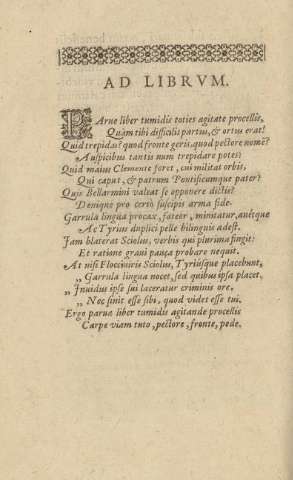 AD LIBRVM.
PArue liber tumidis toties agitate procellis,
Quàm tibi difficilis partus, & ortus erat!
Quid trepidas? quod fronte geris, quod pectore nomē?
Auspicibus tantis num trepidare potes?
Quid maius Clemente foret, cui militat orbis,
Qui caput, & patrum Pontificumque pater?
Quis Bellarmini valeat se opponere dictis?
Denique pro certo suscipis arma fide.
Garrula lingua procax, fateor, minitatur, auetque
Ac Tyrius duplici pelle bilinguis adest.
Iam blaterat Sciolus, verbis qui plurima fingit:
Et ratione graui pauca probare nequit.
At nisi Floccinaris Sciolus, Tyriusque placebunt,
„ Garrula lingua nocet, sed quibus ipsa placet.
„ Inuidus ipse sui laceratur criminis ore,
„ Noc sinit esse sibi, quod videt esse tui.
Ergo parue liber tumidis agitande procellis
Carpe viam tuto, pectore, fronte, pede.